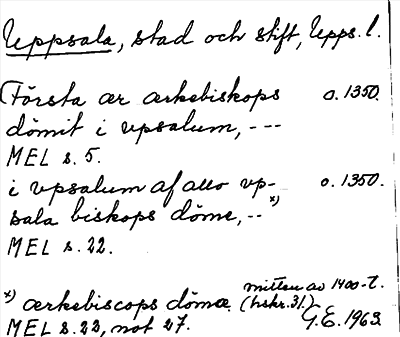 Uppsala, stad och stift, Upps. l.
(Första ær ærkebiskops o. 1350.
dömit i vpsalum, ---
MEL s. 5.
i vpsalum af allo vp- o. 1350.
sala biskops döme, --x)
MEL s. 22.
mitten av 1400-t.
x) ærkebiscops dömæ (hskr. 31.)
MEL s. 23, not 27. G.E. 1963.